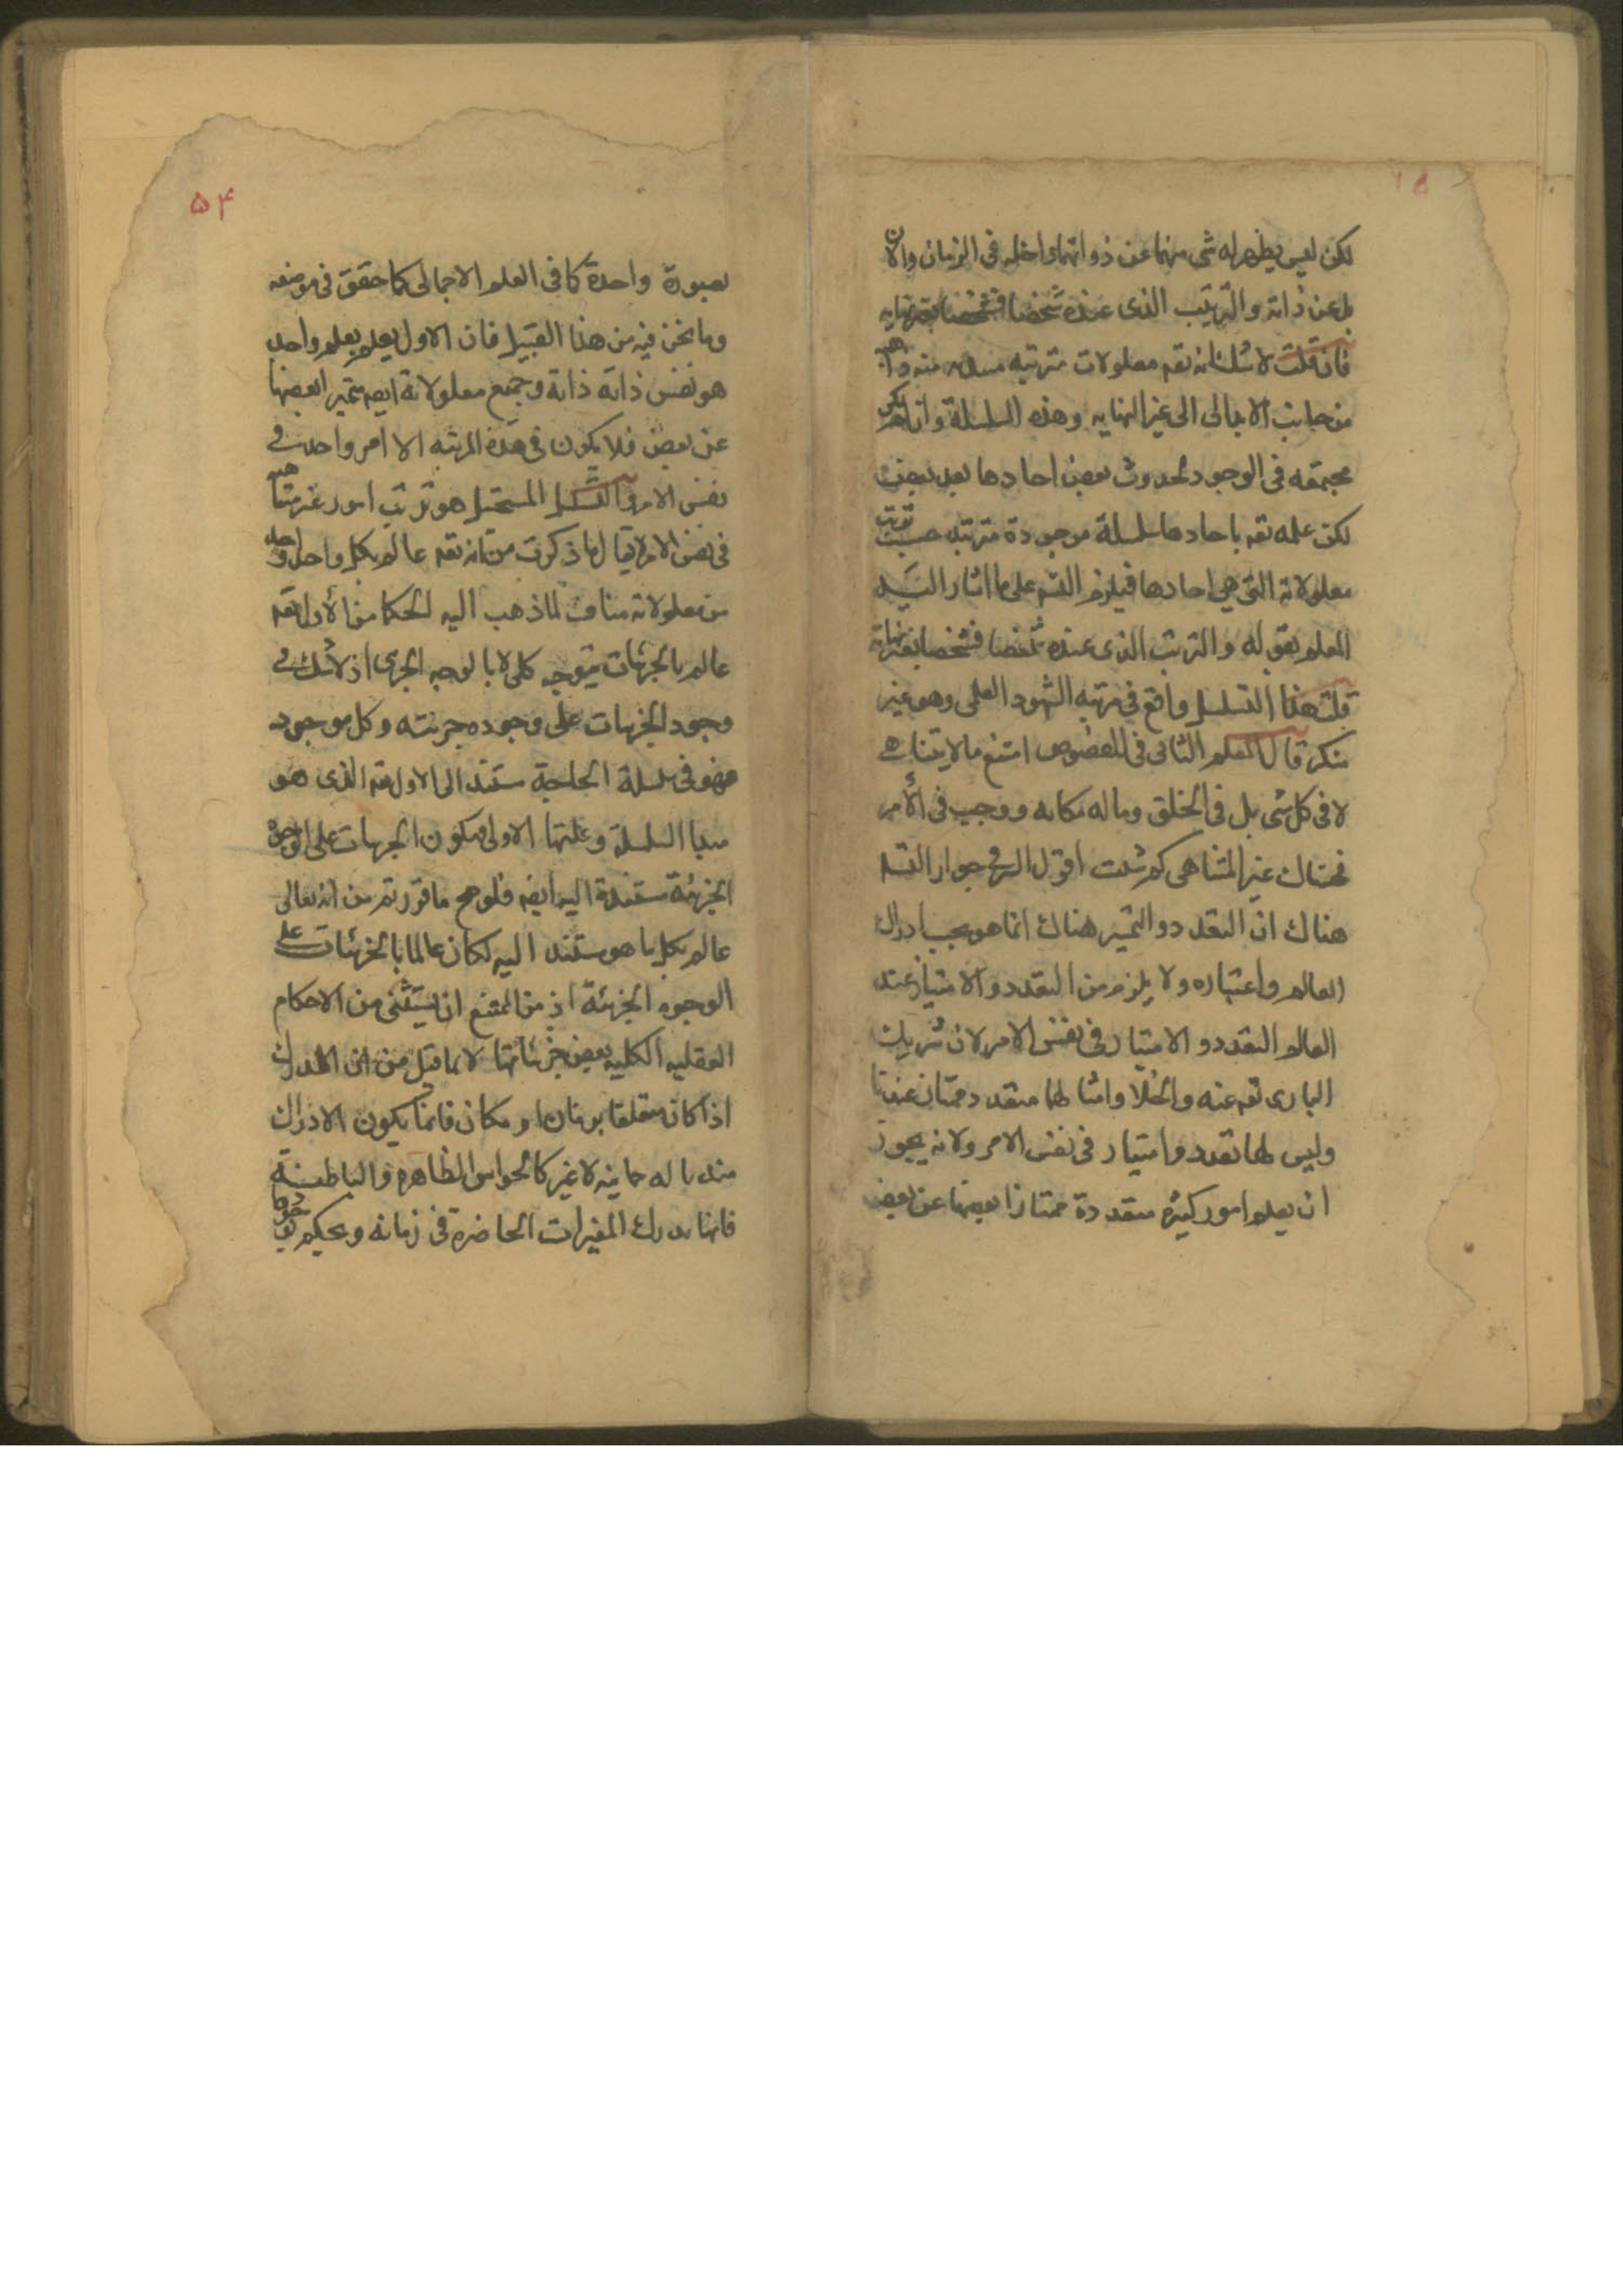 لكن ليس يظهر له شى منها عن ذواتها داخله فى الزمان والآن
بل عن ذاته والترتيب الذى عنده شخصا فشخصا بغير نهايه
فان قلت لا شك انه تعه معلولات مترتبه منه
من جانب الا الى غير النهايه وهذه السلسلة وان لم يكن
مجتمعه فى الوجود لحدوث بعض احادها بعد بعض
لكن علمه تعه باحادها سلسلة موجودة مترتبه حسب ترتب
معلولاته التى هى احادها فيلزم التسه على ما اشار اليه
المعلم بقوله والترتب الذى عنده شخصا فشخصا بغير نهاية
قلت هذا التسلسل واقع فى مرتبه الشهود العلمى وهو غير
منكر قال المعلم الثانى فى الفصوص امتنع ما لا يتناهى
لا فى كل شى بل فى الخلق وما له مكانه ووجب فى الأمر
فهناك غير المتناهى كم شئت اقول السر فى جواز التسه
هناك ان التعدد والتميز هناك انما هو بحسب ادراك
العالم واعتباره ولا يلزم من التعدد والامتياز عند
العالم التعدد والامتياز فى نفس الامر لان شريك
البارى تعه عنه والخلا وامثالهما متعدد ممتاز عندنا
وليس لها تعدد وامتياز فى نفس الامر ولانه يجوز
ان يعلم امور كثيره متعددة ممتازا بعضها عن بعض
۵۴
بصورة واحدة كما فى العلم الاجمالى كما حقق فى موضعه
وما نحن فيه من هذا القبيل فان الاول يعلم بعلم واحد
هو نفس ذاته ذاته وجميع معلولاته ايضه متميزا بعضها
عن بعض فلا يكون فى هذه المرتبه الا امر واحد فى
نفس الامر والتسلسل المستحيل هو ترتب امور غير متناهيه
فى نفس الامر لا يقال ما ذكرت من انه تعه عالم بكل واحد واحد
من معلولاته مناف لما ذهب اليه الحكما من ان الاول تعه
عالم بالجزئيات بوجه كلى لا بالوجه الجزى اذ لا شك فى
وجود الجزئيات على وجوده جزئيه وكل موجود
فهو فى سلسلة الحاجة ستند الى الاول تعه الذى هو
مبدا السلسلة وعلتها الاولى فيكون الجزئيات على الوجوه
الجزئية مستندة اليه ايضه فلو صح ما قررتم من انه تعالى
عالم بكل ما هو مستند اليه لكان عالما بالجزئيات على
الوجوه الجزئية اذ من الممتنع ان يستثنى من الاحكام
العقليه الكليه بعض جزئياتها لا بما قيل من ان المدرك
اذا كان متعلقا بزمان او مكان فانما يكون الادراك
منه باله جسمانيه لا غير كالحواس الظاهره والباطنة
فانها يدرك المتغيرات الحاضرة فى زمانه ويحكم بوجودها